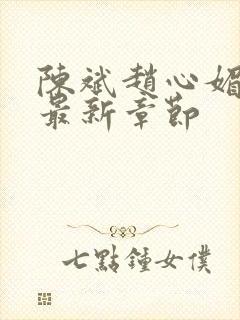 陳斌趙心媚
最新章節
七點鍾女僕